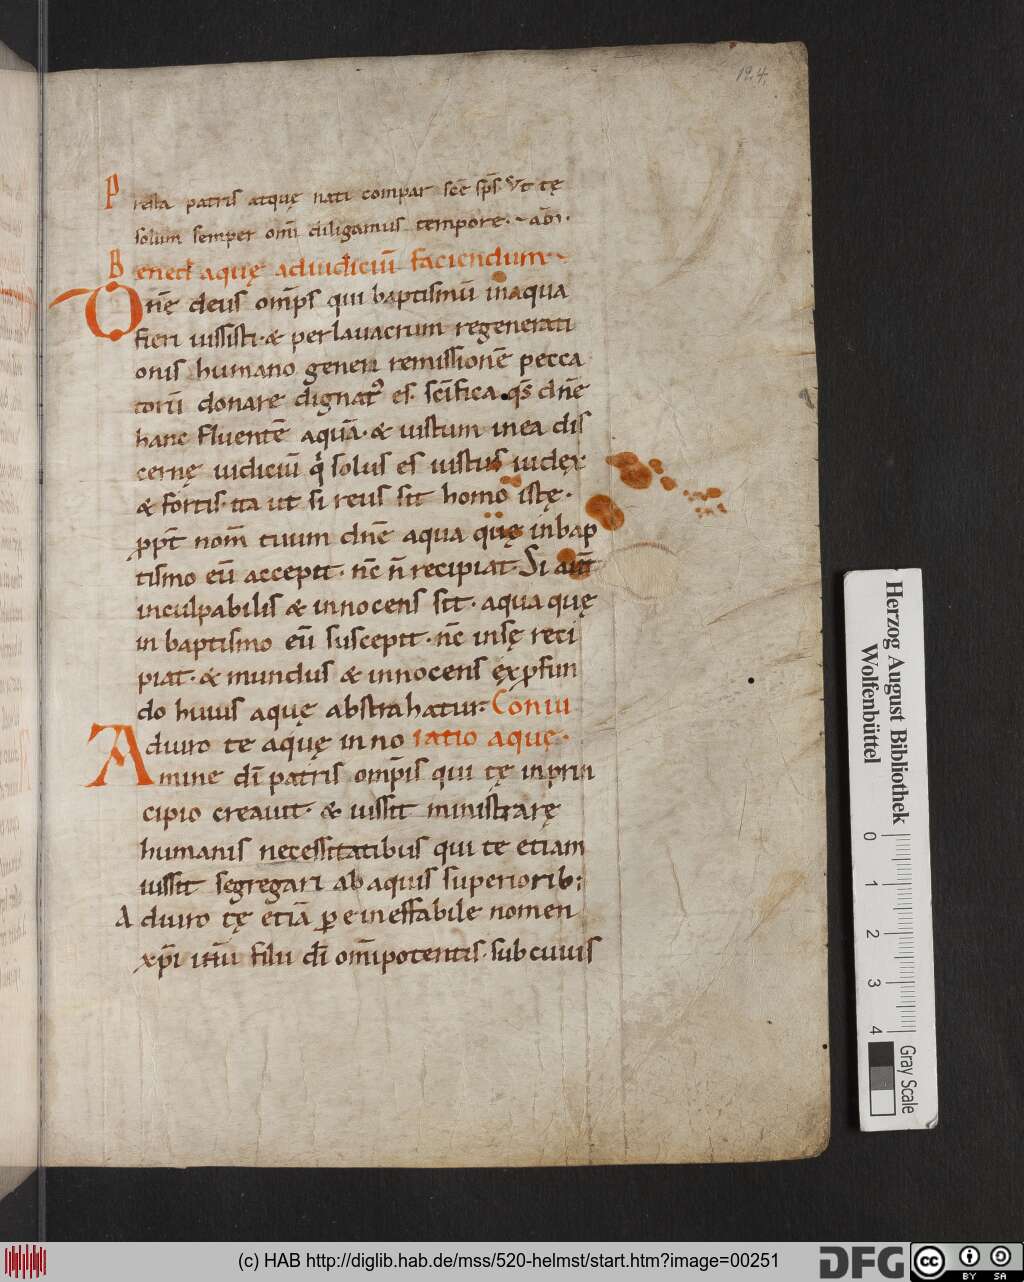 124.
Prella patris atquę nati compar scē sp̄s. Vt tę
solum semper om̄i diligamus tempore. am̄.
Bened̄ aquę adiudiciū faciendum
Dn̄e deus om̄ps qui baptismū in aqua
fieri iussisti. & per lauacrum regenerati
onis humano generi remissionē pecca
torū donare dignatꝰ es. sc̄ifica qs̄ dn̄e
hanc fluentē aquā. & iustum in ea dis
cernę iudiciū q̇ solus es iustus iudęx
& fortis. ita ut si reus sit homo istę.
ꝓpt̄ nom̄ tuum dn̄e aqua quę in bap
tismo eū accepit. nc̄ n̄ recipiat. Si aut̄
inculpabilis & innocens sit. aqua quę
in baptismo eū suscepit. nc̄ in sę reci
piat. & mundus & innocens ęx ꝓfun
do huius aquę abstrahatur Coniu
Adiuro te aquę in no ratio aquę.
mine dī patris om̄pis qui tę in prin
cipio creauit. & iussit ministrarę
humanis necessitatibus qui te etiam
iussit segregari ab aquis superiorib;
Adiuro tę etiā ꝑ e ineffabile nomen
xp̄i ih̄u filii dī om̄ipotentis. sub cuius
Herzog August Bibliothek
Wolfenbüttel
0 1 2 3 4
Gray Scale
(c) HAB http://diglib.hab.de/mss/520-helmst/start.htm?image=00251
DFG
cc BY SA